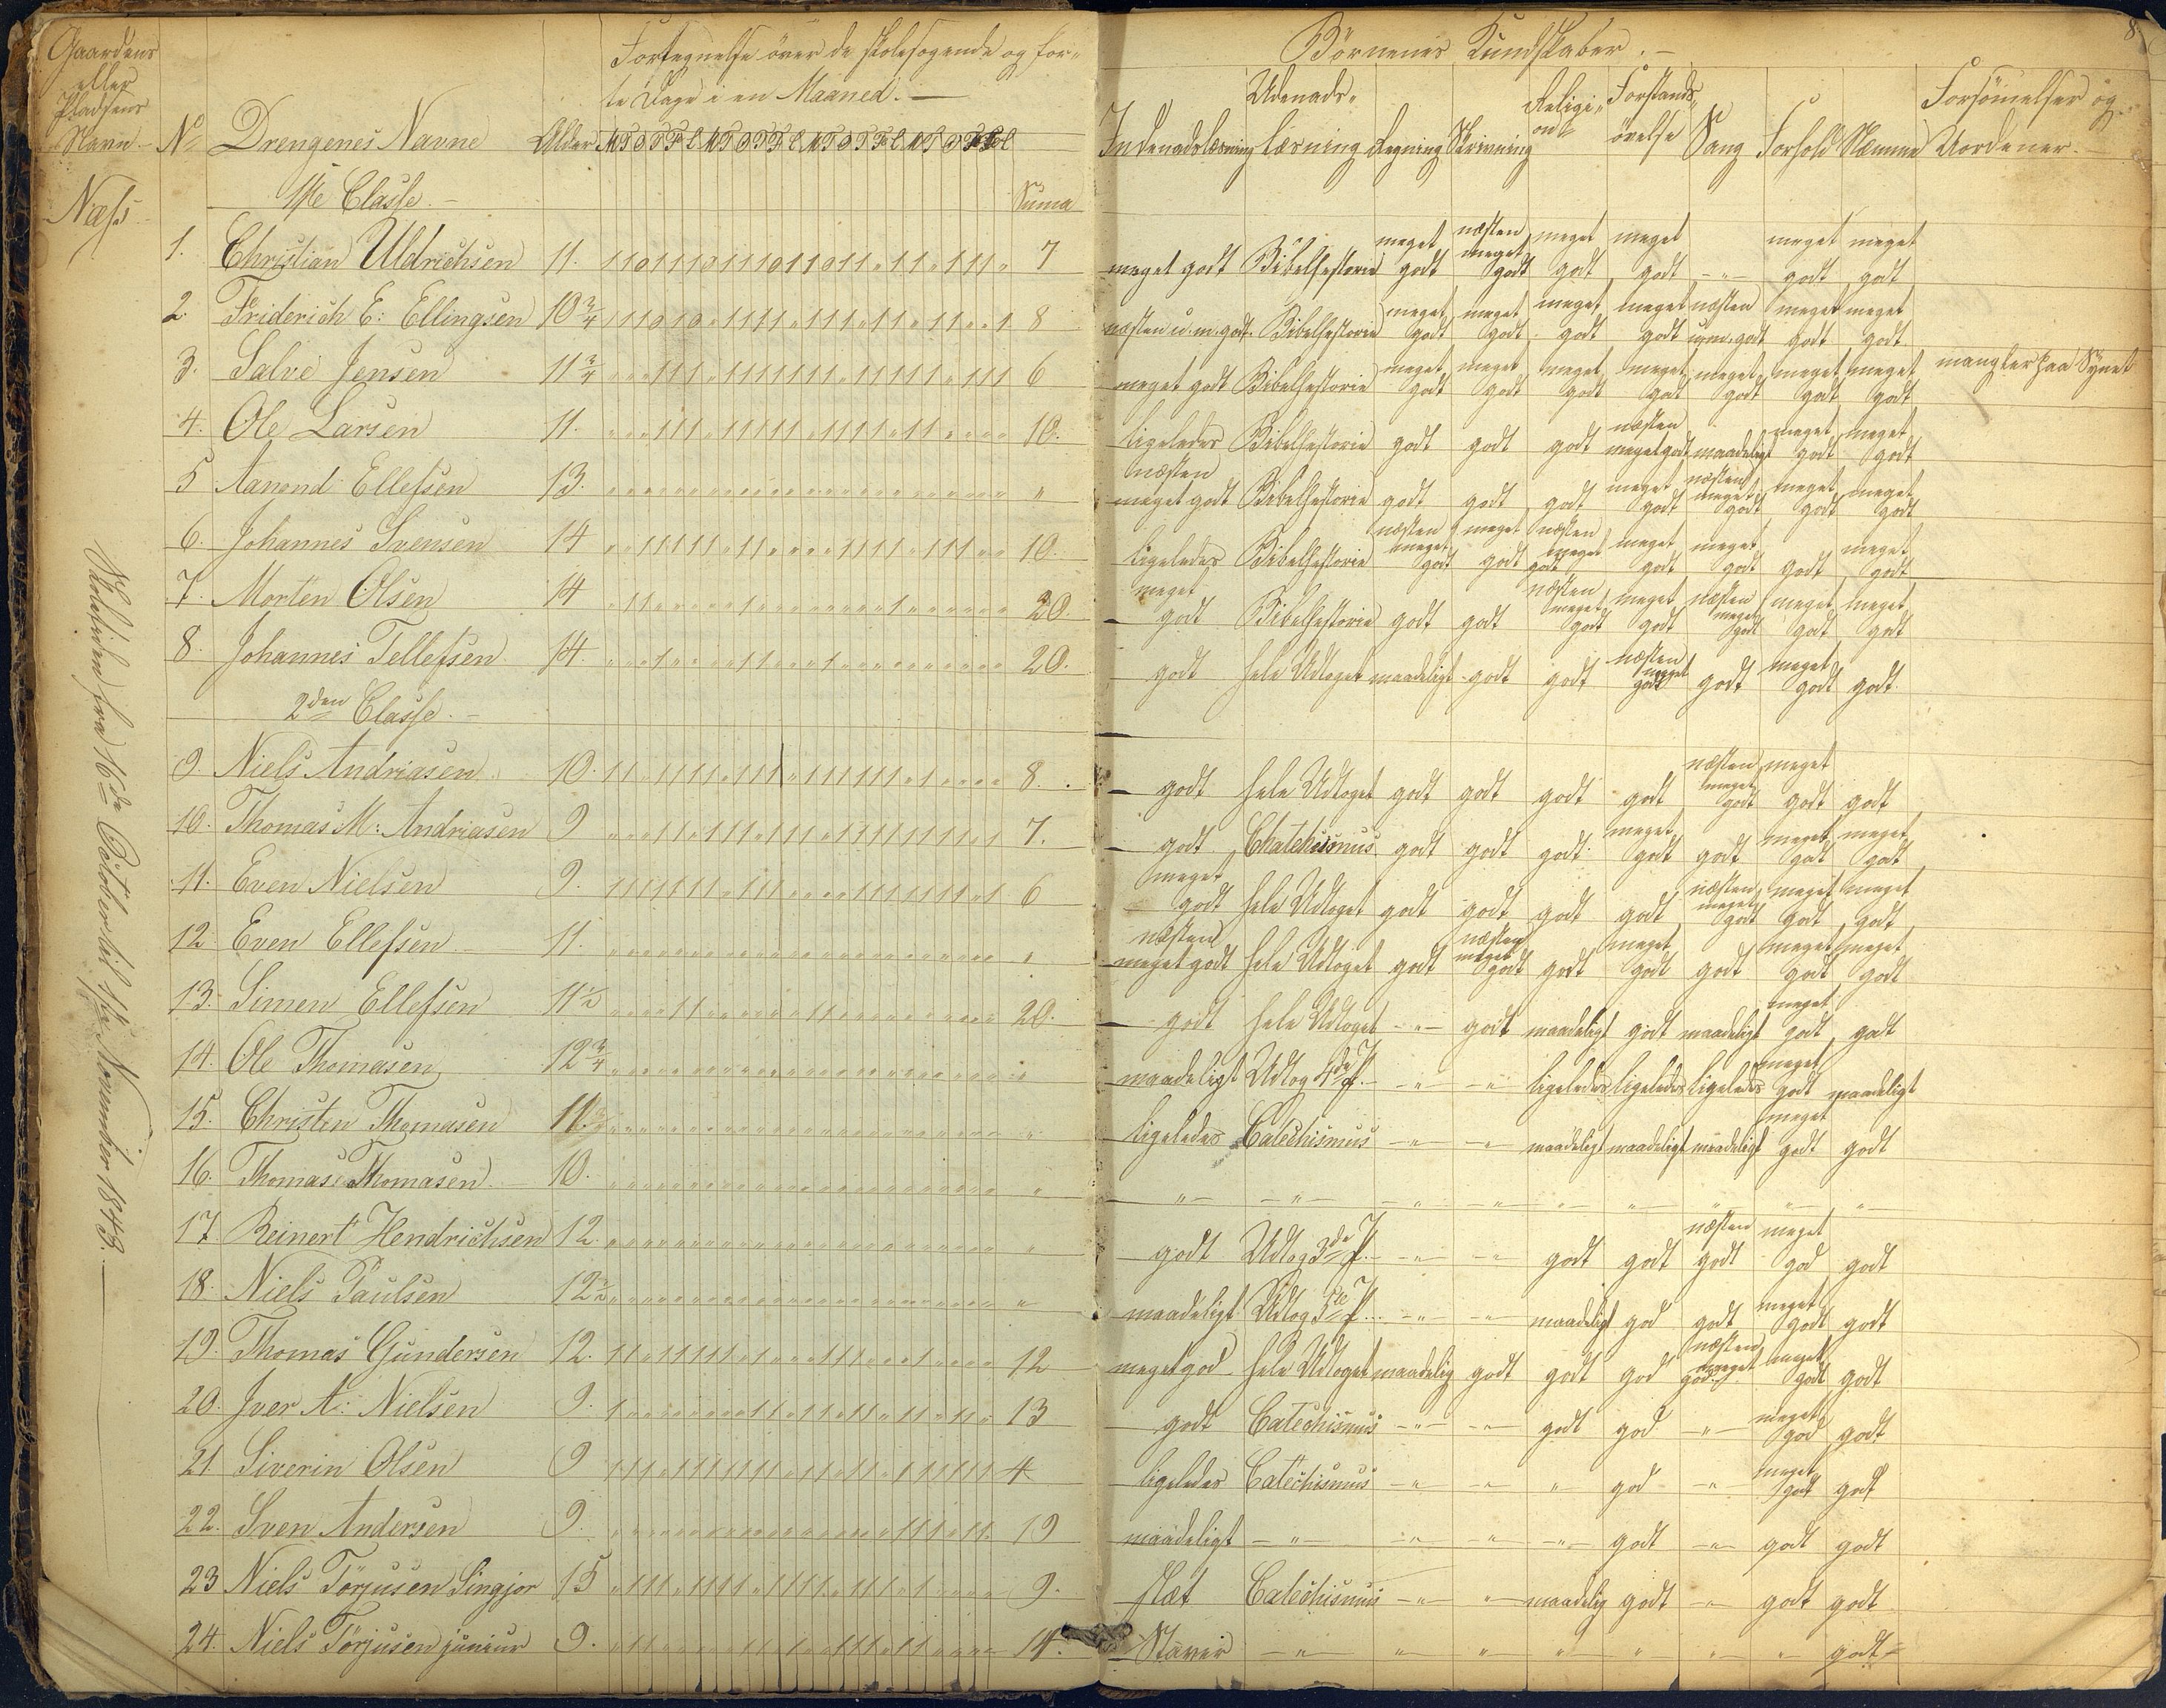 Gaardens
eller
Pladsens
Navn
Fortegnelse över de skolesögende og for-
te Dage i en Maaned.
Börnenes Kundskaber.
8
No Drengenes Navne Alder M T O T F L M T O T F L M T O T F L M T O T F L
Indenadslæsning Udenads-læsning Regning Skrivning Religion Forstands-övelse Sang Forhold Næmme Forsömmelser og Uordener.
Næss
1ste Classe.
Suma
1. Christian Uldrichsen 11. 7 meget godt Bibelhistorie meget godt næsten meget godt meget godt meget godt - " - meget godt meget godt
2. Friderich E: Ellingsen 10 3/4 8 næsten u.m. godt. Bibelhistorie meget godt meget godt meget godt meget godt næsten u.m. godt meget godt meget godt
3. Salve Jensen 11 3/4 6 meget godt Bibelhistorie meget godt meget godt meget godt meget godt meget godt meget godt meget godt mangler paa Synet
4. Ole Larsen 11. 10. ligeledes Bibelhistorie godt godt godt næsten meget godt maadeligt meget godt meget godt
5 Aanend Ellefsen 13. " næsten meget godt Bibelhistorie godt godt godt meget godt næsten meget godt meget godt meget godt
6. Johannes Svensen 14 10. ligeledes Bibelhistorie næsten meget godt meget godt næsten meget godt meget godt meget godt godt meget godt
7. Morten Olsen 14 20. meget godt Bibelhistorie godt godt næsten meget godt meget godt næsten meget godt meget godt meget godt
8. Johannes Tellefsen 14. 20. godt hele Udtoget maadeligt godt godt næsten meget godt godt meget godt godt.
2den Classe.
9. Niels Andriasen 10. 8. godt hele Udtoget godt godt godt godt næsten meget godt meget godt godt
10. Thomas M: Andriasen 9 7. godt Chatehismus godt godt godt meget godt godt meget godt meget godt
11. Even Nielsen 9. 6 meget godt hele Udtoget godt godt godt godt næsten meget godt meget godt meget godt
12 Even Ellefsen 11. " næsten meget godt hele Udtoget godt næsten meget godt godt meget godt godt meget godt meget godt
13. Simen Ellefsen 11 1/2 20. godt hele Udtoget - " - godt maadeligt godt maadeligt meget godt godt
14. Ole Thomasen 12 3/4 " maadeligt Udtog 4de P. - " - " ligeledes ligeledes ligeledes meget godt maadeligt
15. Christen Thomasen " ligeledes Catechismus - " - " maadeligt maadeligt maadeligt meget godt godt
16. Thomas Thomasen 10. " " " " " " " " " "
17. Reinert Hendrichsen 12. " godt Udtog 3de P. - " - " godt godt næsten godt meget god godt
18. Niels Paulsen " maadeligt Udtog - " - " maadeligt god godt meget godt godt
19. Thomas Gundersen 12. 12 meget god hele Udtoget maadelig godt godt god næsten meget god meget godt godt
20. Iver A: Nielsen 9. 13 godt Catechismus - " - " godt god " meget god godt
21 Siverin Olsen 9 4 ligeledes Catechismus - " - " " god " meget godt godt
22. Sven Andersen 9. 19 maadeligt " " " " godt " godt godt
23 Niels Törjusen Singjor 15 9. slet Catechismus - " - " maadelig godt " godt godt
24. Niels Törjusen juniur 9. 14. Staver " " " " " " " godt
Skoletiden fra 16de October til 1ste November 1848.